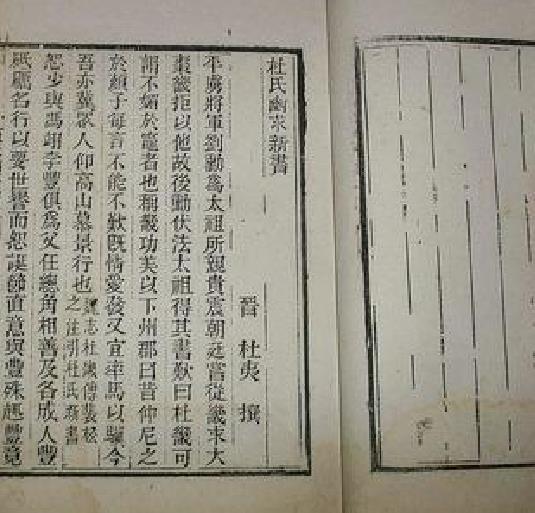 杜氏幽求新書
晉 杜夷 撰
平虜將軍劉勳爲太祖所親貴震朝廷嘗從畿求大
棗畿拒以他故後勳伏法太祖得其書歎曰杜畿可
謂不媚於竈者也稱畿功美以下州郡曰昔仲尼之
於顏子每言不能不歎旣情愛發又宜率馬以驥今
吾亦冀眾人仰高山慕景行也魏志杜畿傳裴松之注引杜氏新書
恕少與馮翊李豐俱爲父任總角相善及各成人豐
砥礪名行以要世譽而恕誕節直意與豐殊趣豐竟